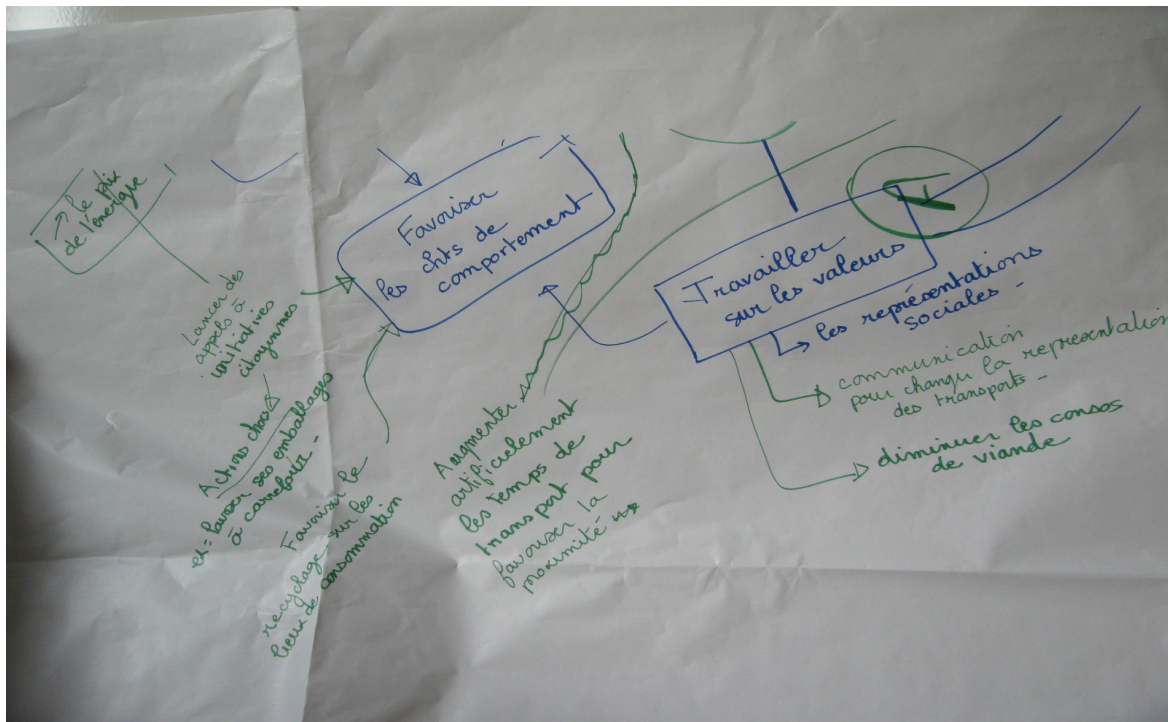 ↗ le prix
de l'énergie
Lancer des
appels à
initiatives
citoyennes
Actions choc
ex: laisser ses emballages
à carrefour -
Favoriser le
recyclage sur les
lieux de consommation
Favoriser
les chts de
comportement
Augmenter
artificiellement
les temps de
transport pour
favoriser la
proximité
Travailler
sur les valeurs
↳ les représentations
sociales -
communication
pour changer la representation
des transports -
diminuer les consos
de viande